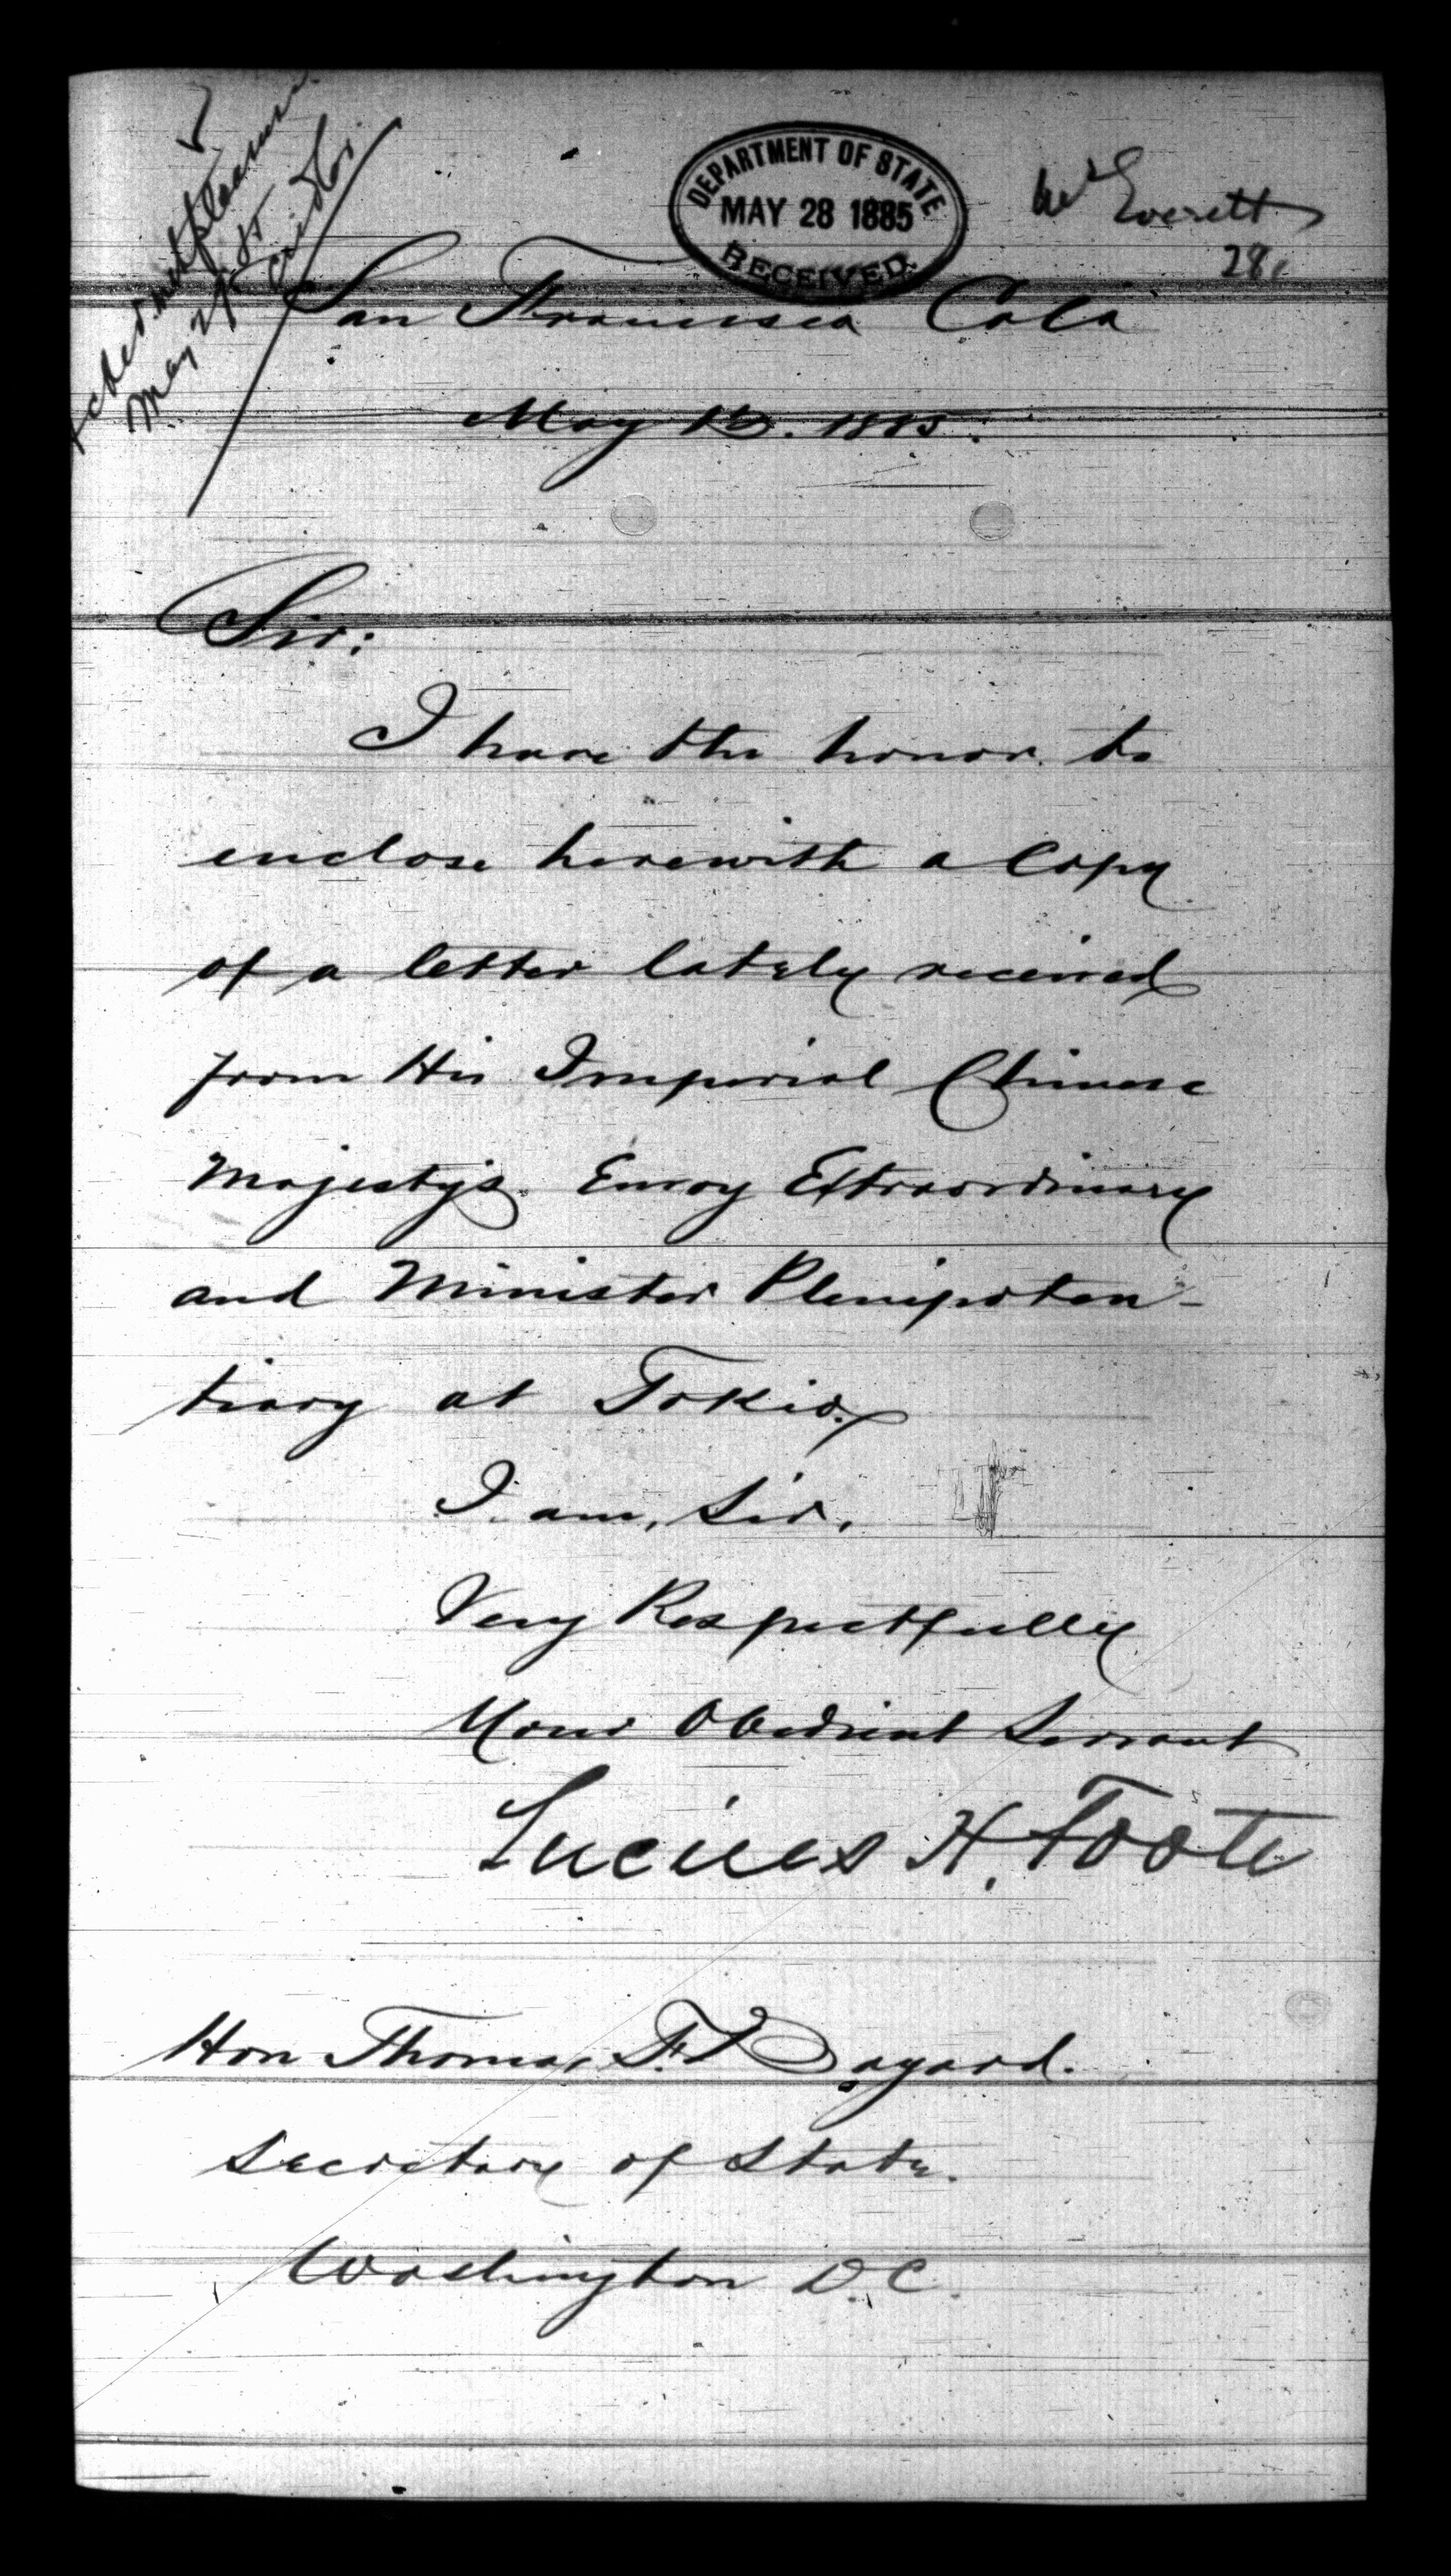 Ackd. with pleasure
May 29. 85
Cridler
DEPARTMENT OF STATE
MAY 28 1885
RECEIVED.
Mr Everett
28.
San Francisco Cala
May 1885.
Sir:
I have the honor to
enclose herewith a copy
of a letter lately received
from His Imperial Chinese
Majesty's Envoy Extraordinary
and Minister Plenipoten-
tiary at Tokio.
I am, Sir,
Very Respectfully
Your Obedient Servant
Lucius H. Foote
Hon Thomas F. Bayard.
Secretary of State.
Washington D.C.